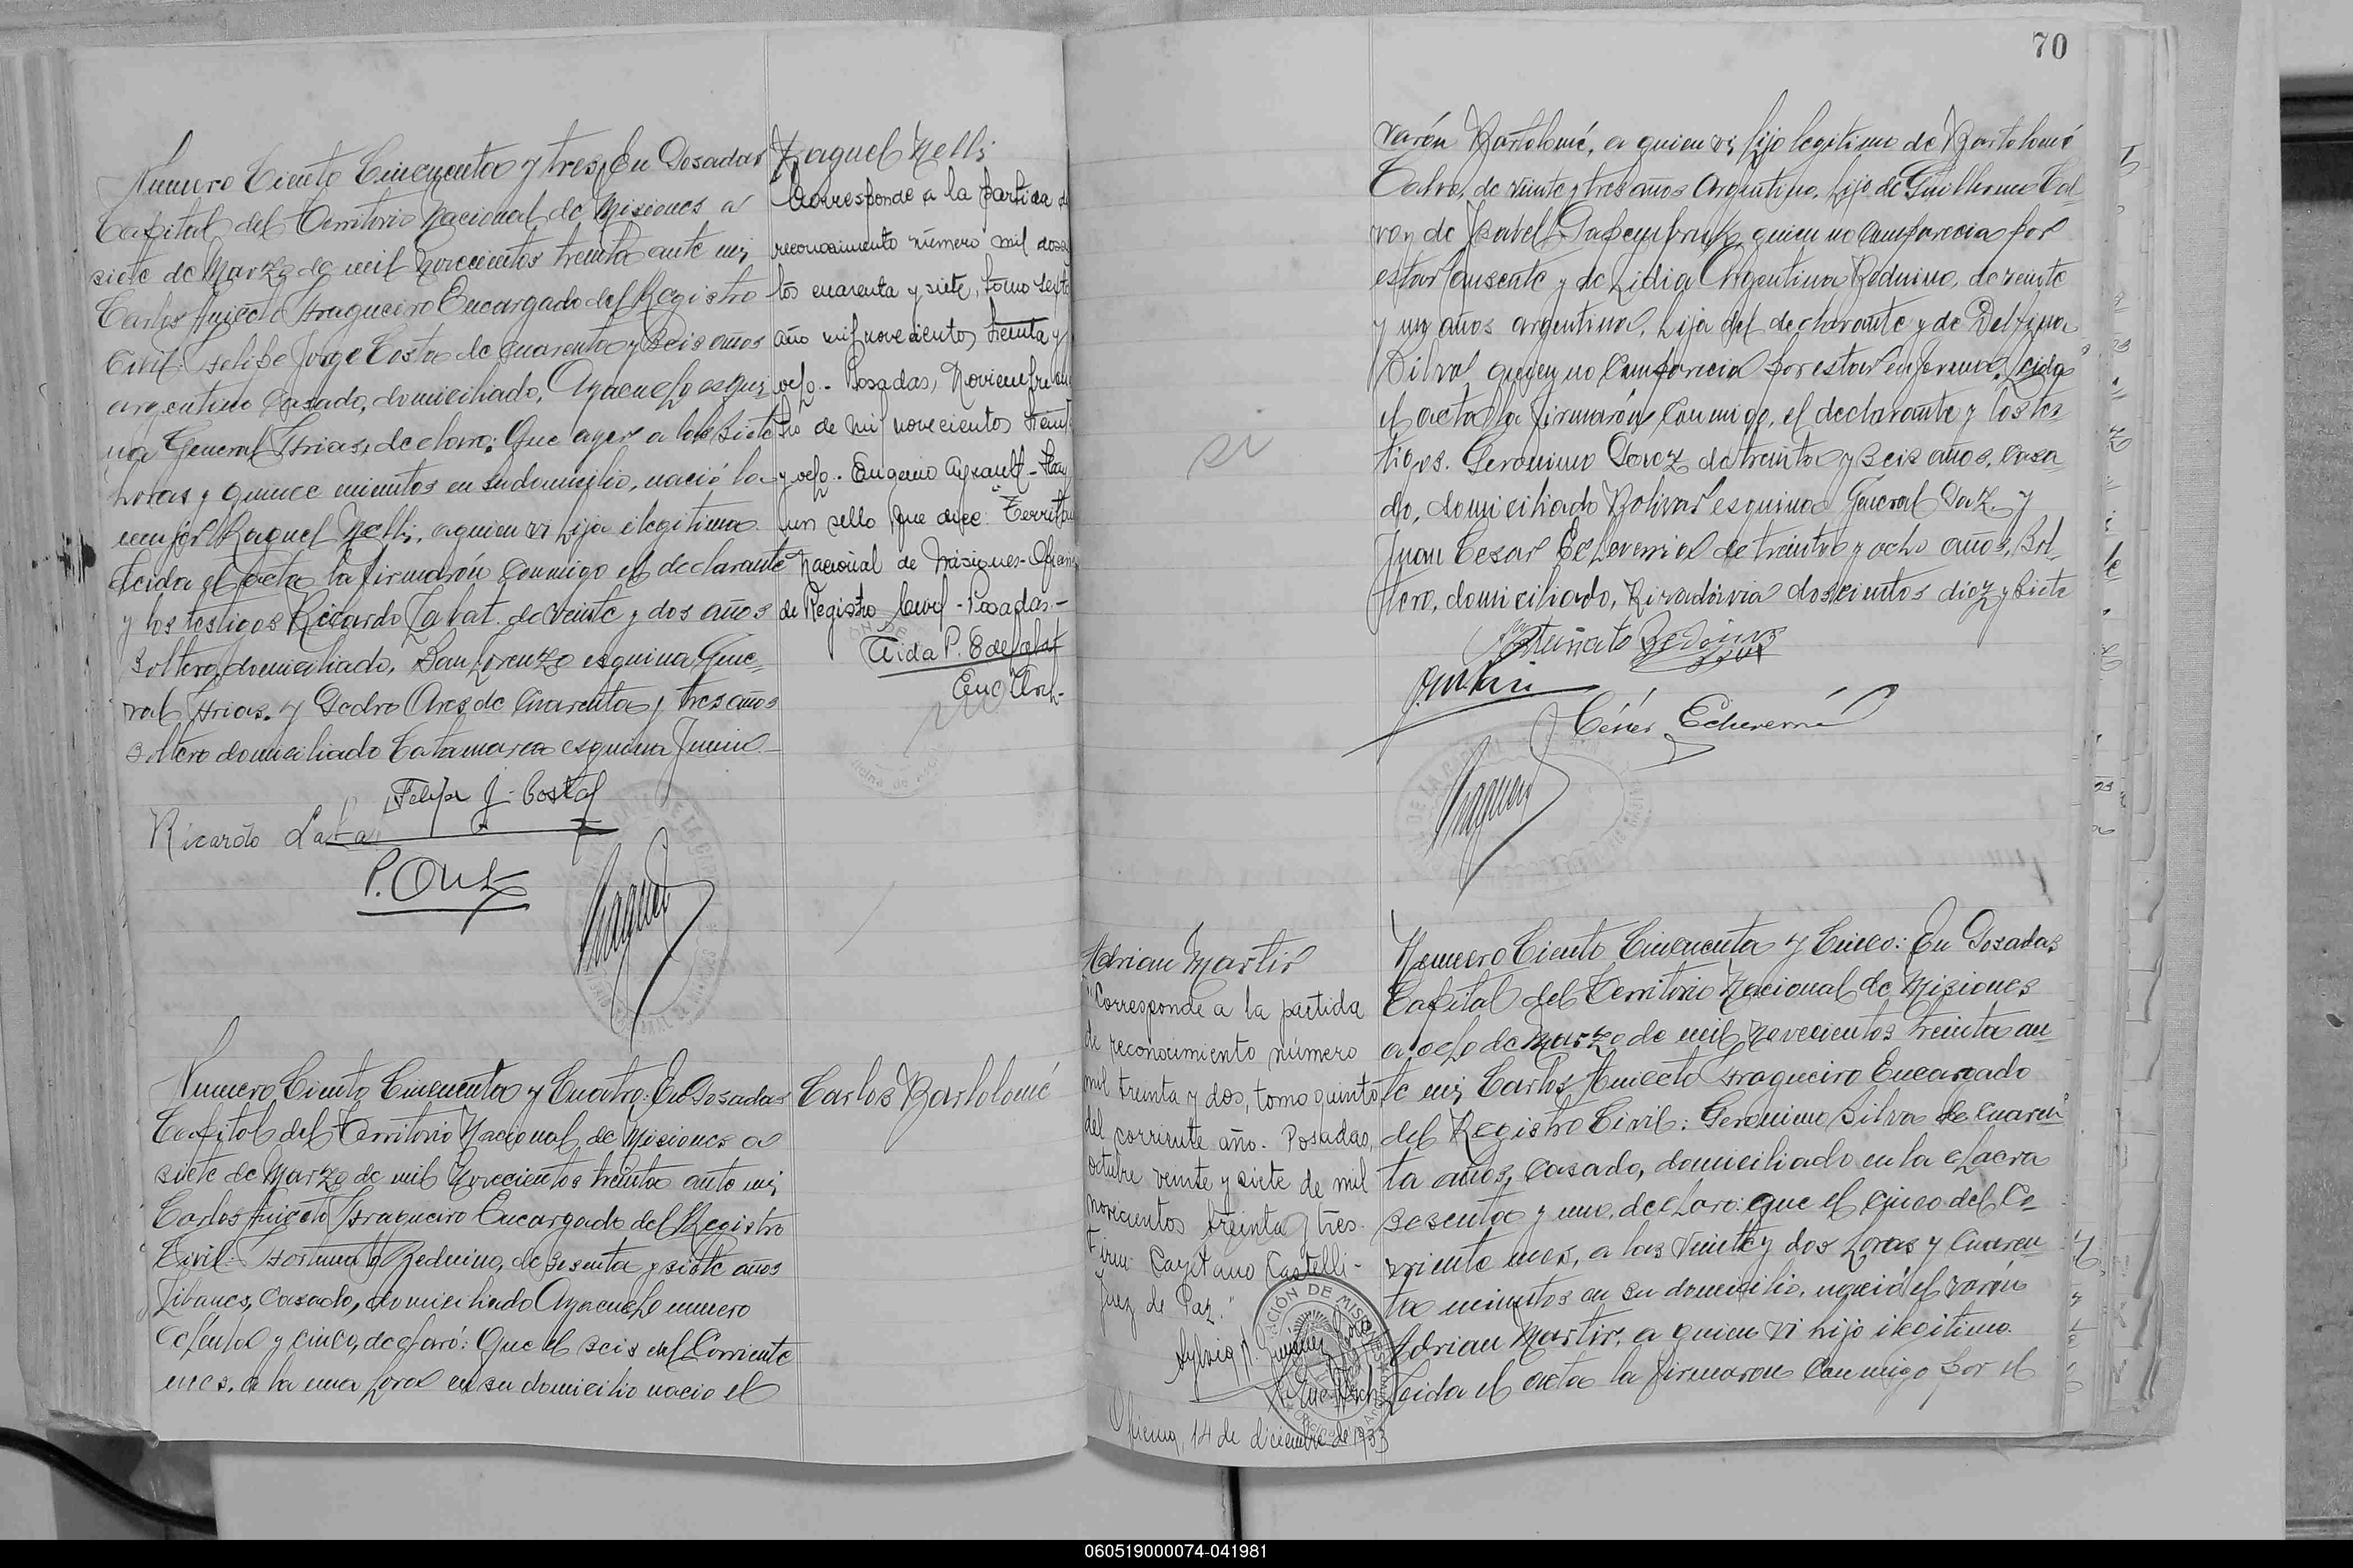 Numero Ciento Cincuenta y tres, En Posadas
Capital del Territorio Nacional de Misiones a
siete de Marzo de mil novecientos treinta ante mi
Carlos Aniceto Fragueiro Encargado del Registro
Civil: Felipe Jorge Costa de cuarenta y seis años
argentino casado, domiciliado, Ayacucho esqui
na General Frias, declaro: Que ayer a las siete
horas y quince minutos en su domicilio, nació la
mujer Raquel Nelli, a quien vi hija ilegitima.
Leida el acta la firmarón conmigo el declarante
y los testigos Ricardo Labat. de veinte y dos años
soltero, domiciliado, San Lorenzo esquina Gene-
ral Frias. y Pedro de cuarenta y tres años
soltero domiciliado Catamarca esquina Junin
Felipe J. Costa
Ricardo
P.
Raquel Nelli
Corresponde a la partida de
reconocimiento número mil dos
tos cuarenta y siete, tomo sexto
año mil novecientos treinta y
ocho.- Posadas, Noviembre
de mil novecientos trein
y ocho. Eugenio - Hay
un sello que dice: "Territo
Nacional de Misiones - Oficina
de Registro Civil - Posadas.-
Aida P.
Enc
Numero Ciento Cincuenta y Cuatro: En Posadas
Capital del Territorio Nacional de Misiones a
siete de Marzo de mil novecientos treinta ante mi
Carlos Aniceto Fragueiro Encargado del Registro
Civil: Fortunato Beduino, de sesenta y siete años
Libanes, casado, domiciliado Ayacucho numero
ochenta y cinco, declaró: Que el seis del Corriente
mes, a la una hora en su domicilio nacio el
Carlos Bartolomé
70
varón Bartolomé, a quien vi hijo legitimo de Bartolomé
Calvo, de veinte y tres años Argentino, hijo de Guillermo Cal-
vo y de Isabel quien no comparecia por
estar ausente y de Lidia Argentina Beduino, de veinte
y un años argentina, hija del declarante y de Delfina
Silva quien no comparecia por estar enferma. Leida
el acta la firmarón conmigo, el declarante y los tes-
tigos. Geronimo de treinta y seis años, casa-
do, domiciliado Bolivar esquina General Paz. y
Juan Cesar Echeverria de treinta y ocho años, Sol-
tero, domiciliado, Rivadavia doscientos diez y siete
Fortunato
César Echeverría
Adrian Martir
"Corresponde a la partida
de reconocimiento número
mil treinta y dos, tomo quinto
del corriente año. Posadas,
octubre veinte y siete de mil
novecientos treinta y tres.
Firm: Cayetano Castelli-
Juez de Paz."
Oficina, 14 de diciembre de 1933
Numero Ciento Cincuenta y Cinco: En Posadas
Capital del Territorio Nacional de Misiones
a ocho de Marzo de mil novecientos treinta an
te mi, Carlos Aniceto Fragueiro Encargado
del Registro Civil: Geronimo Silva de cuaren
ta años, casado, domiciliado en la chacra
sesenta y uno, declaro: que el cinco del Co-
rriente mes, a las veinte y dos horas y cuaren
ta minutos en su domicilio, nació el varón
Adrian Martir, a quien vi hijo ilegitimo.
Leida el acta la firmaron conmigo por el
060519000074-041981